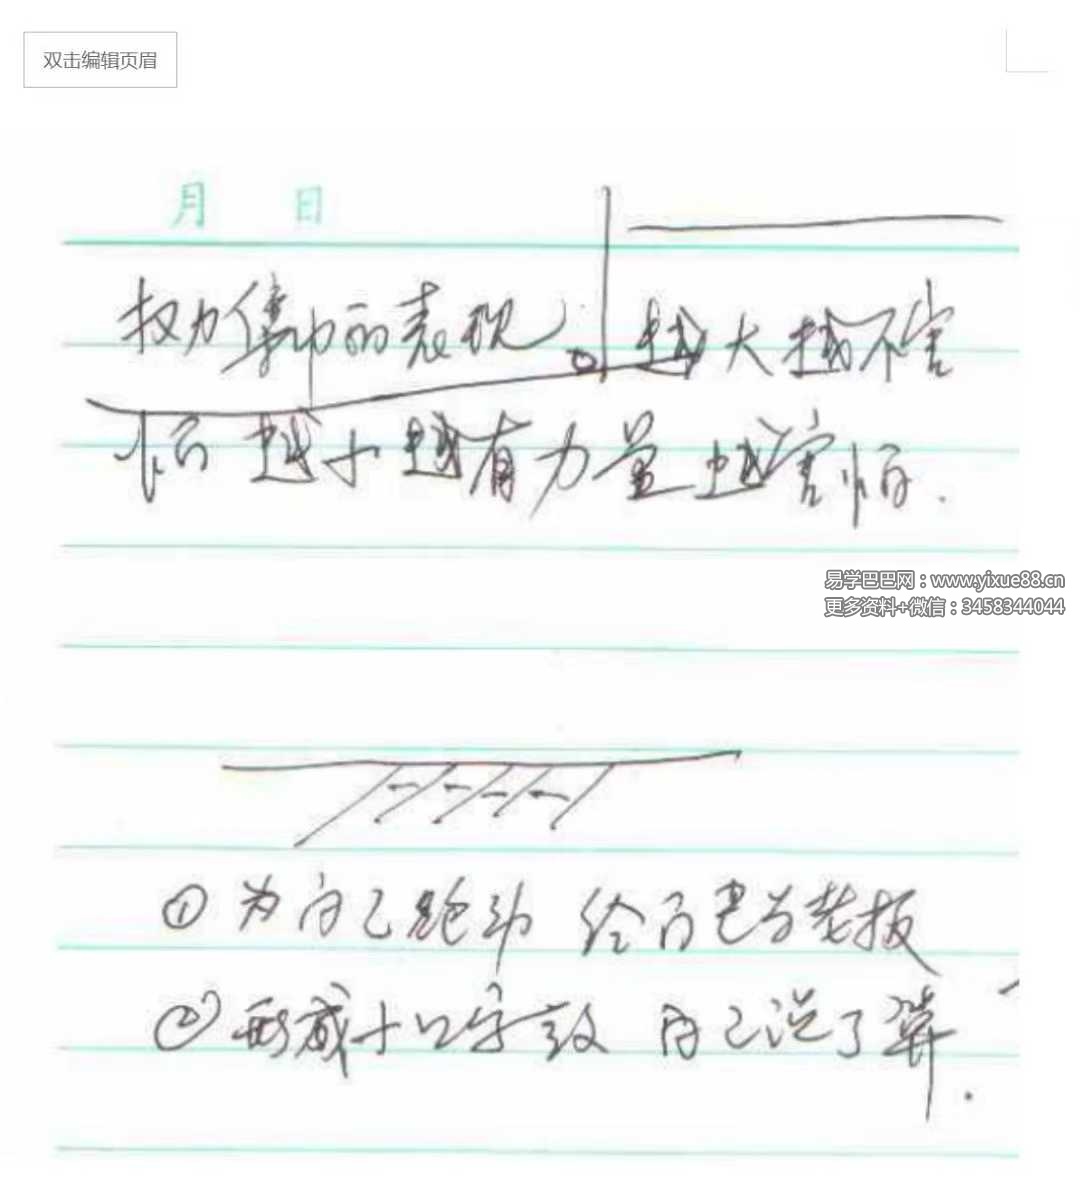 双击编辑页眉
月 日
权力集中的表现。越大越不害
怕 越小越有力量越害怕.
易学巴巴网：www.yixue88.cn
更多资料+微信：3458344044
①为自己跑动 给自己当老板
②形成十口字 自己说了算.